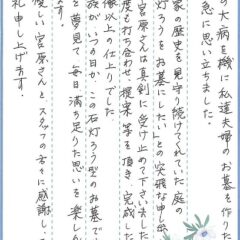 の大病を機に私達夫婦のお墓を作りた
念に思い立ちました。
家の歴史を見守り続けてくれていた庭の
灯ろうをお墓にしたいとの突飛な申し出
宮原さんは真剣に受け止めて下さいました
度も打ち合わせ、提案等を頂き、完成した
像以上の仕上りでした。
族がいつの日か、この石灯ろう型のお墓で
を夢見て毎日満ち足りた思いを楽しん
ます。
優しい宮原さんとスタッフの方々に感謝し
礼申し上げます。